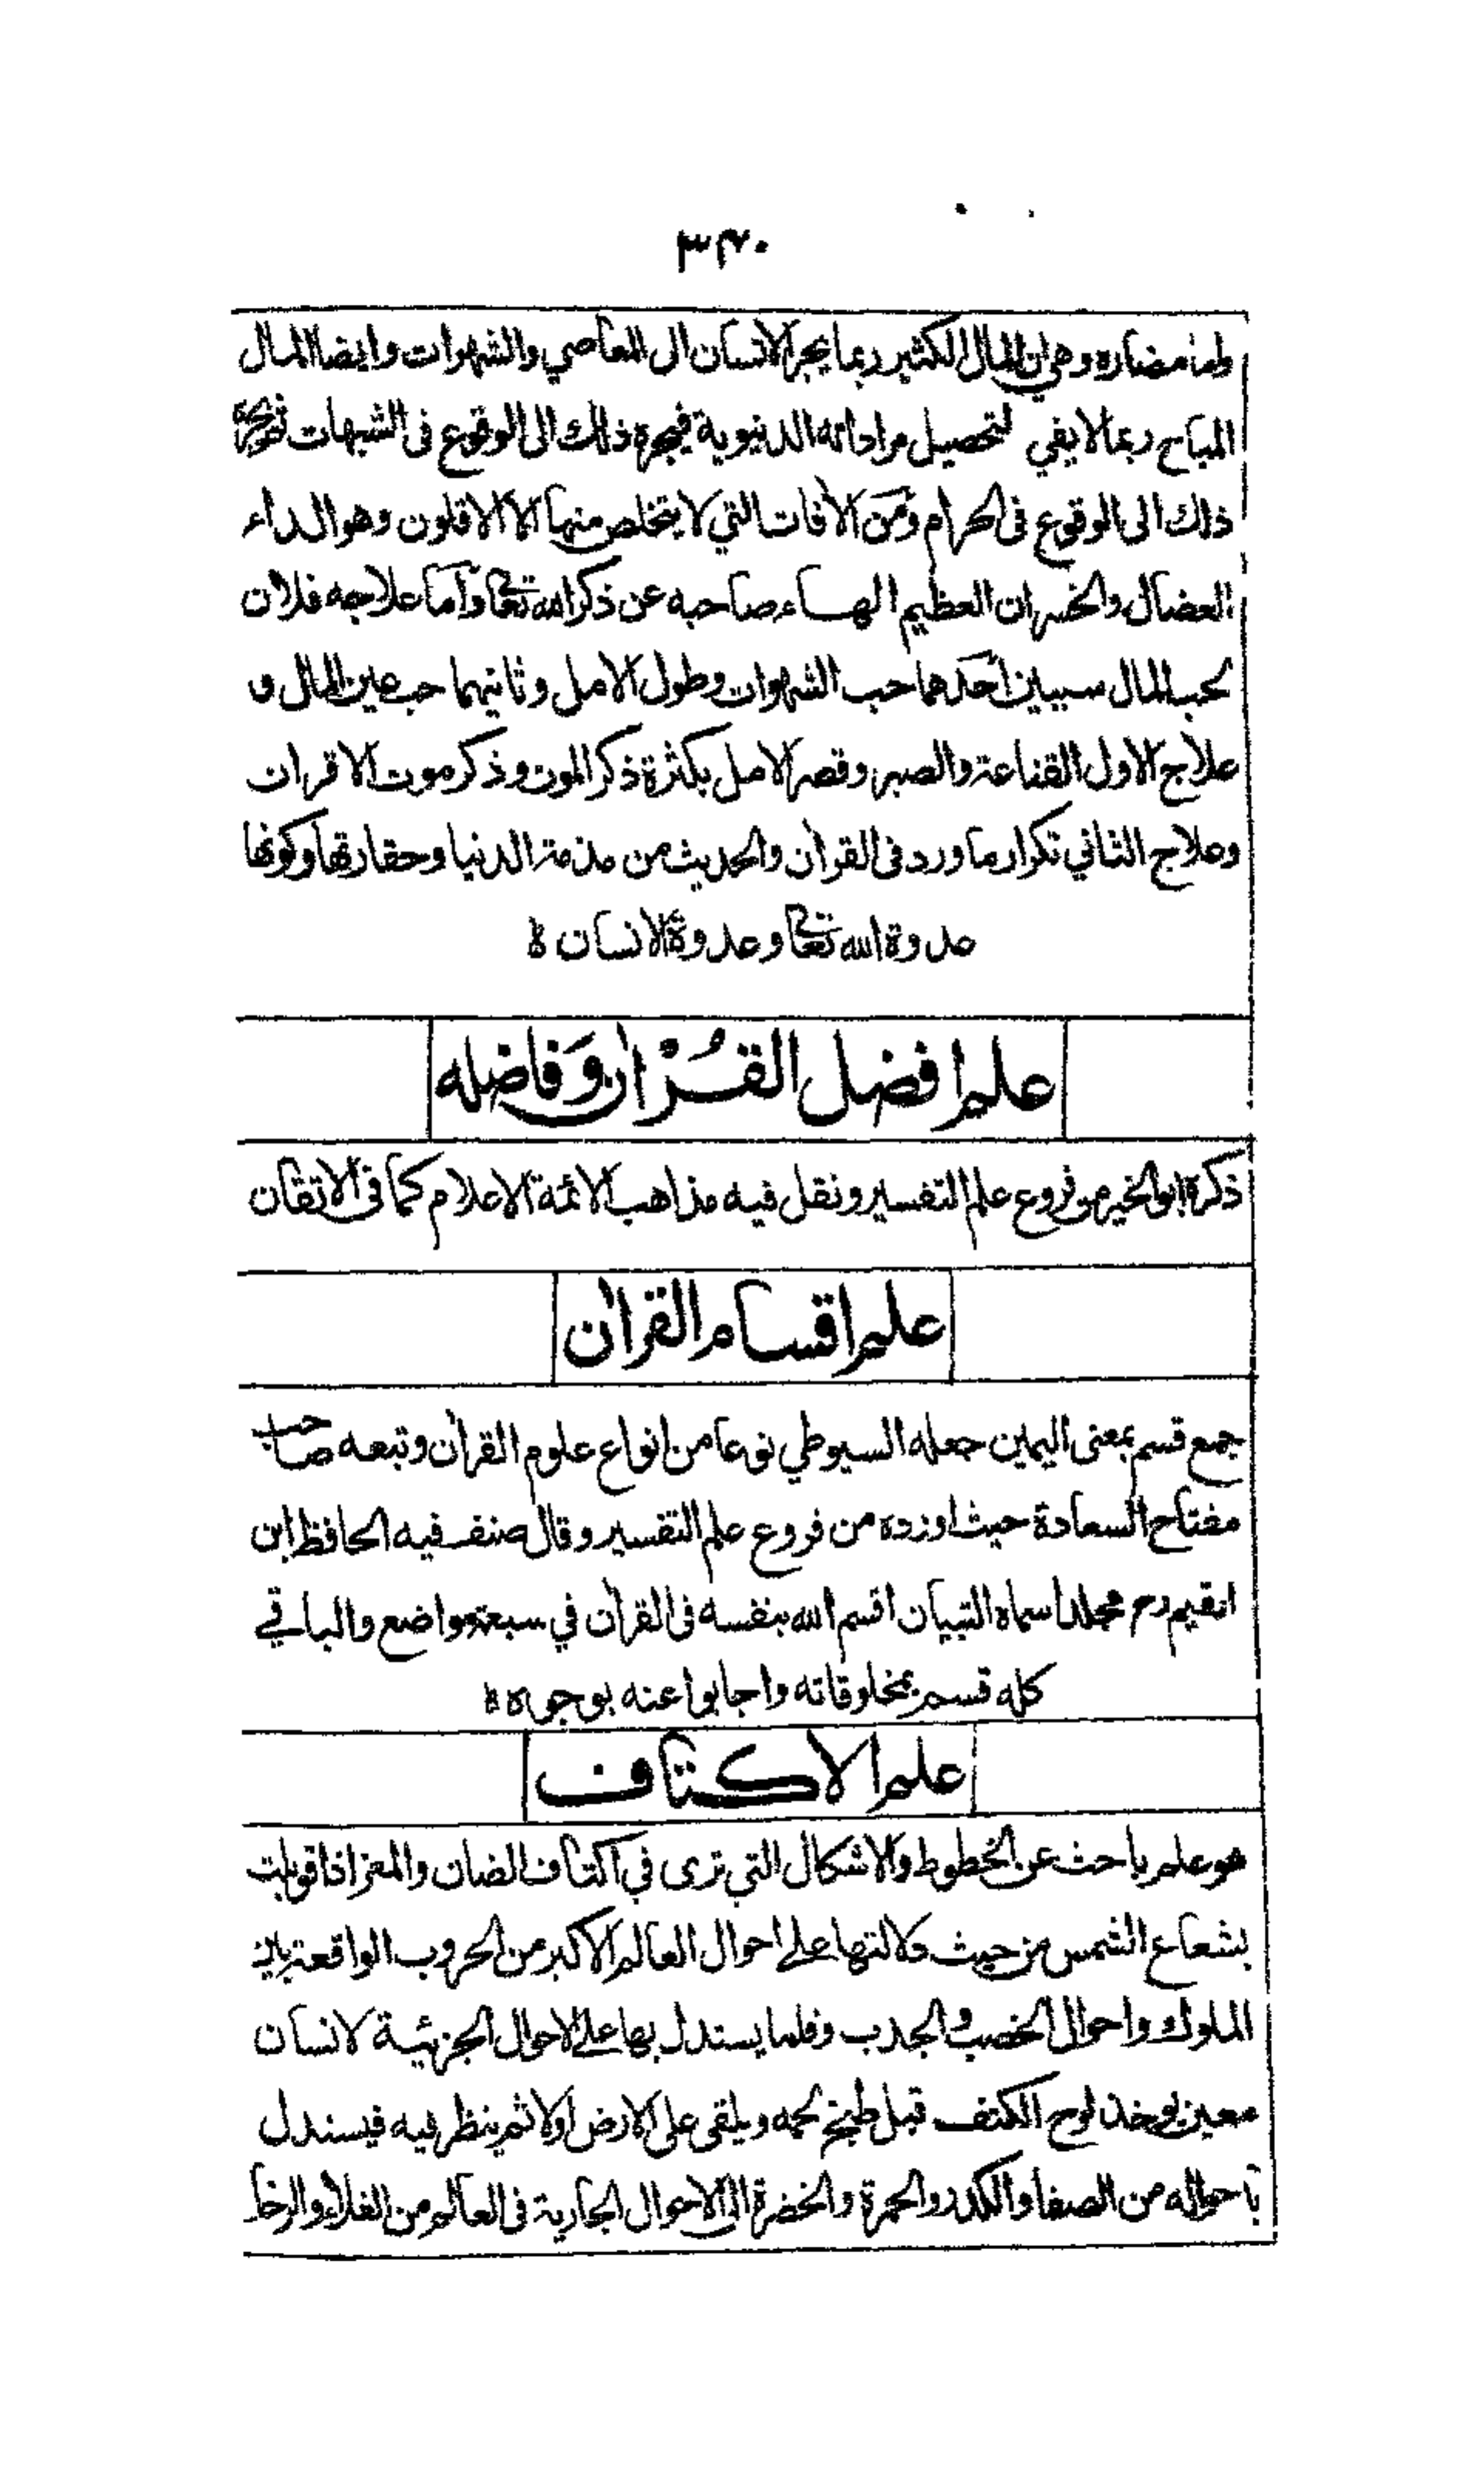 ٣٢٠
واما مضاره وهي ان المال الكثير ربما يجر الانسان الى المعاصي والشهوات وايضا المال
المباح ربما لا يفي لتحصيل مراداته الدنيوية فيجره ذلك الى الوقوع في الشبهات ثم يجره
ذلك الى الوقوع في الحرام ومن الآفات التي لا يتخلص منها الا الاقلون وهو الداء
العضال والخسران العظيم الهاء صاحبه عن ذكر الله تعالى وأما علاجه فلان
لحب المال سببين أحدهما حب الشهوات وطول الامل وثانيهما حب عين المال و
علاج الاول القناعة والصبر وقصر الامل بكثرة ذكر الموت وذكر موت الاقران
وعلاج الثاني تكرار ما ورد في القرآن والحديث من مذمة الدنيا وحقارتها وكونها
عدوة الله تعالى وعدوة الانسان ة
علم افضل القُرْآن وَفاضله
ذكره ابو الخير من فروع علم التفسير ونقل فيه مذاهب الائمة الاعلام كما في الاتقان
علم اقسام القرآن
جمع قسم بمعنى اليمين جعله السيوطي نوعا من انواع علوم القرآن وتبعه صاحب
مفتاح السعادة حيث اورده من فروع علم التفسير وقال صنف فيه الحافظ ابن
القيم رح مجلدا سماه التبيان اقسم الله بنفسه في القرآن في سبعة مواضع والباقي
كله قسم بمخلوقاته واجابوا عنه بوجوه ة
علم الاكتاف
هو علم باحث عن الخطوط والاشكال التي ترى في اكتاف الضان والمعز اذا قوبلت
بشعاع الشمس من حيث دلالتها على احوال العالم الاكبر من الحروب الواقعة بين
الملوك واحوال الخصب والجدب وقلما يستدل بها على الاحوال الجزئية لانسان
معين يوخذ لوح الكتف قبل طبخ لحمه ويلقى على الارض اولا ثم ينظر فيه فيستدل
باحواله من الصفا والكدر والحمرة والخضرة الى الاحوال الجارية في العالم من الغلاء والرخا